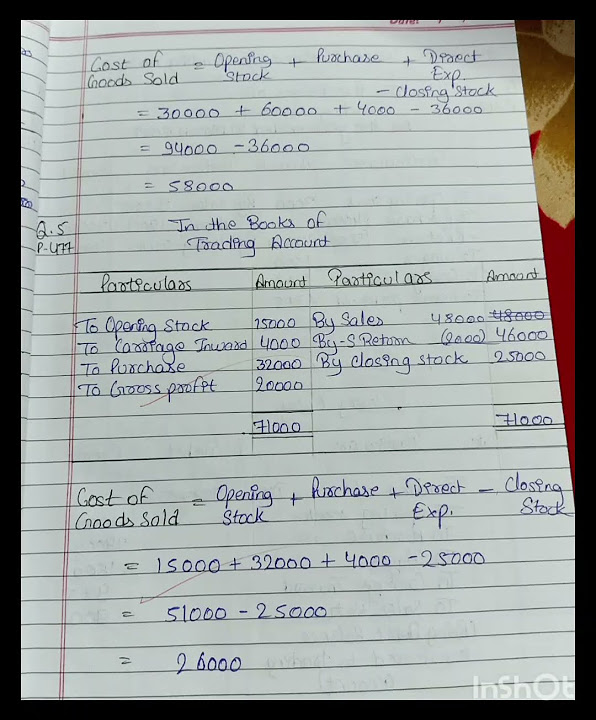 Cost of Goods Sold = Opening Stock + Purchase + Direct Exp. - Closing Stock
= 30000 + 60000 + 4000 - 36000
= 94000 - 36000
= 58000
Q.5
P-477
In the Books of
Trading Account
Particulars Amount Particulars Amount
To Opening Stock 15000 By Sales 48000 48000
To Carriage Inward 4000 By S Return (2000) 46000
To Purchase 32000 By Closing Stock 25000
To Gross profit 20000
71000 71000
Cost of Goods Sold = Opening Stock + Purchase + Direct Exp. - Closing Stock
= 15000 + 32000 + 4000 - 25000
= 51000 - 25000
= 26000
InShOt